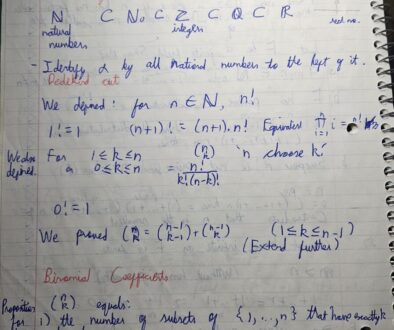 N ⊂ N₀ ⊂ Z ⊂ Q ⊂ R
natural numbers integers real no.
- Identify α by all rational numbers to the left of it.
Dedekind cut
We defined: for n ∈ N, n!
1! = 1 (n+1)! = (n+1)·n! Equivalent ∏ i = n!
i=1
We also defined For 1 ≤ k ≤ n (n k) 'n choose k'
0 ≤ k ≤ n = n! / k!(n-k)!
0! = 1
We proved (n k) = (n-1 k-1) + (n-1 k) (1 ≤ k ≤ n-1)
(Extend further)
Binomial Coefficients
Proposition (n k) equals:
for i) the number of subsets of {1, ..., n} that have exactly k